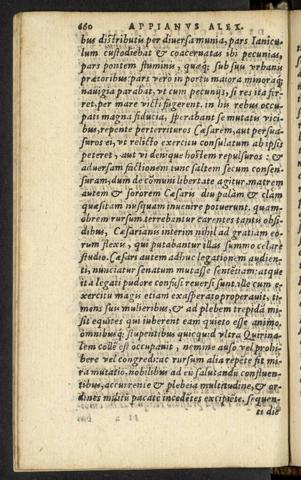 660 APPIANVS ALEX.
bus distributis per diuersa munia, pars Ianicu
lum custodiebat & coaceruatas ibi pecunias,
pars pontem fluminis, quæq; sub suis vrbanis
prætoribus: pars verò in portu maiora minoraq́;
nauigia parabat, vt cum pecunijs, si res ita fer
ret, per mare victi fugerent. in his rebus occu-
pati magna fiducia, sperabant se mutatis vici
bus, repente perterrituros Cæsarem, aut persua-
suros ei, vt relicto exercitu consulatum ab ipsis
peteret, aut vi deniq́ue hostem repulsuros : &
aduersam factionem nunc saltem secum consen-
suram, dum de cōmuni libertate agitur. matrem
autem & sororem Cæsaris diu palam & clam
quæsitam nusquam inuenire potuerunt. quam-
obrem rursum terrebantur carentes tantis obsi-
dibus, Cæsarianis interim nihil ad gratiam eo-
rum flexis, qui putabantur illas summo celare
studio. Cæsari autem adhuc legationem audien-
ti, nunciatur senatum mutasse sententiam: atque
ita legati pudore confusi reuersi sunt. ille cum e-
xercitu magis etiam exasperato properauit, ti-
mens suis mulieribus, & ad plebem trepidā mi-
sit equites qui iuberent eam quieto esse animo.
omnibusq́; stupentibus quicquid vltra Quirina-
lem collē est occupauit, nemine auso vel prohi-
bere vel congredi: ac rursum alia repēte fit mi
ra mutatio, nobilibus ad eū salutandū confluen-
tibus, accurrente & plebeia multitudine, & or-
dines militū pacate incedētes excipiēte. sequen-
ti die